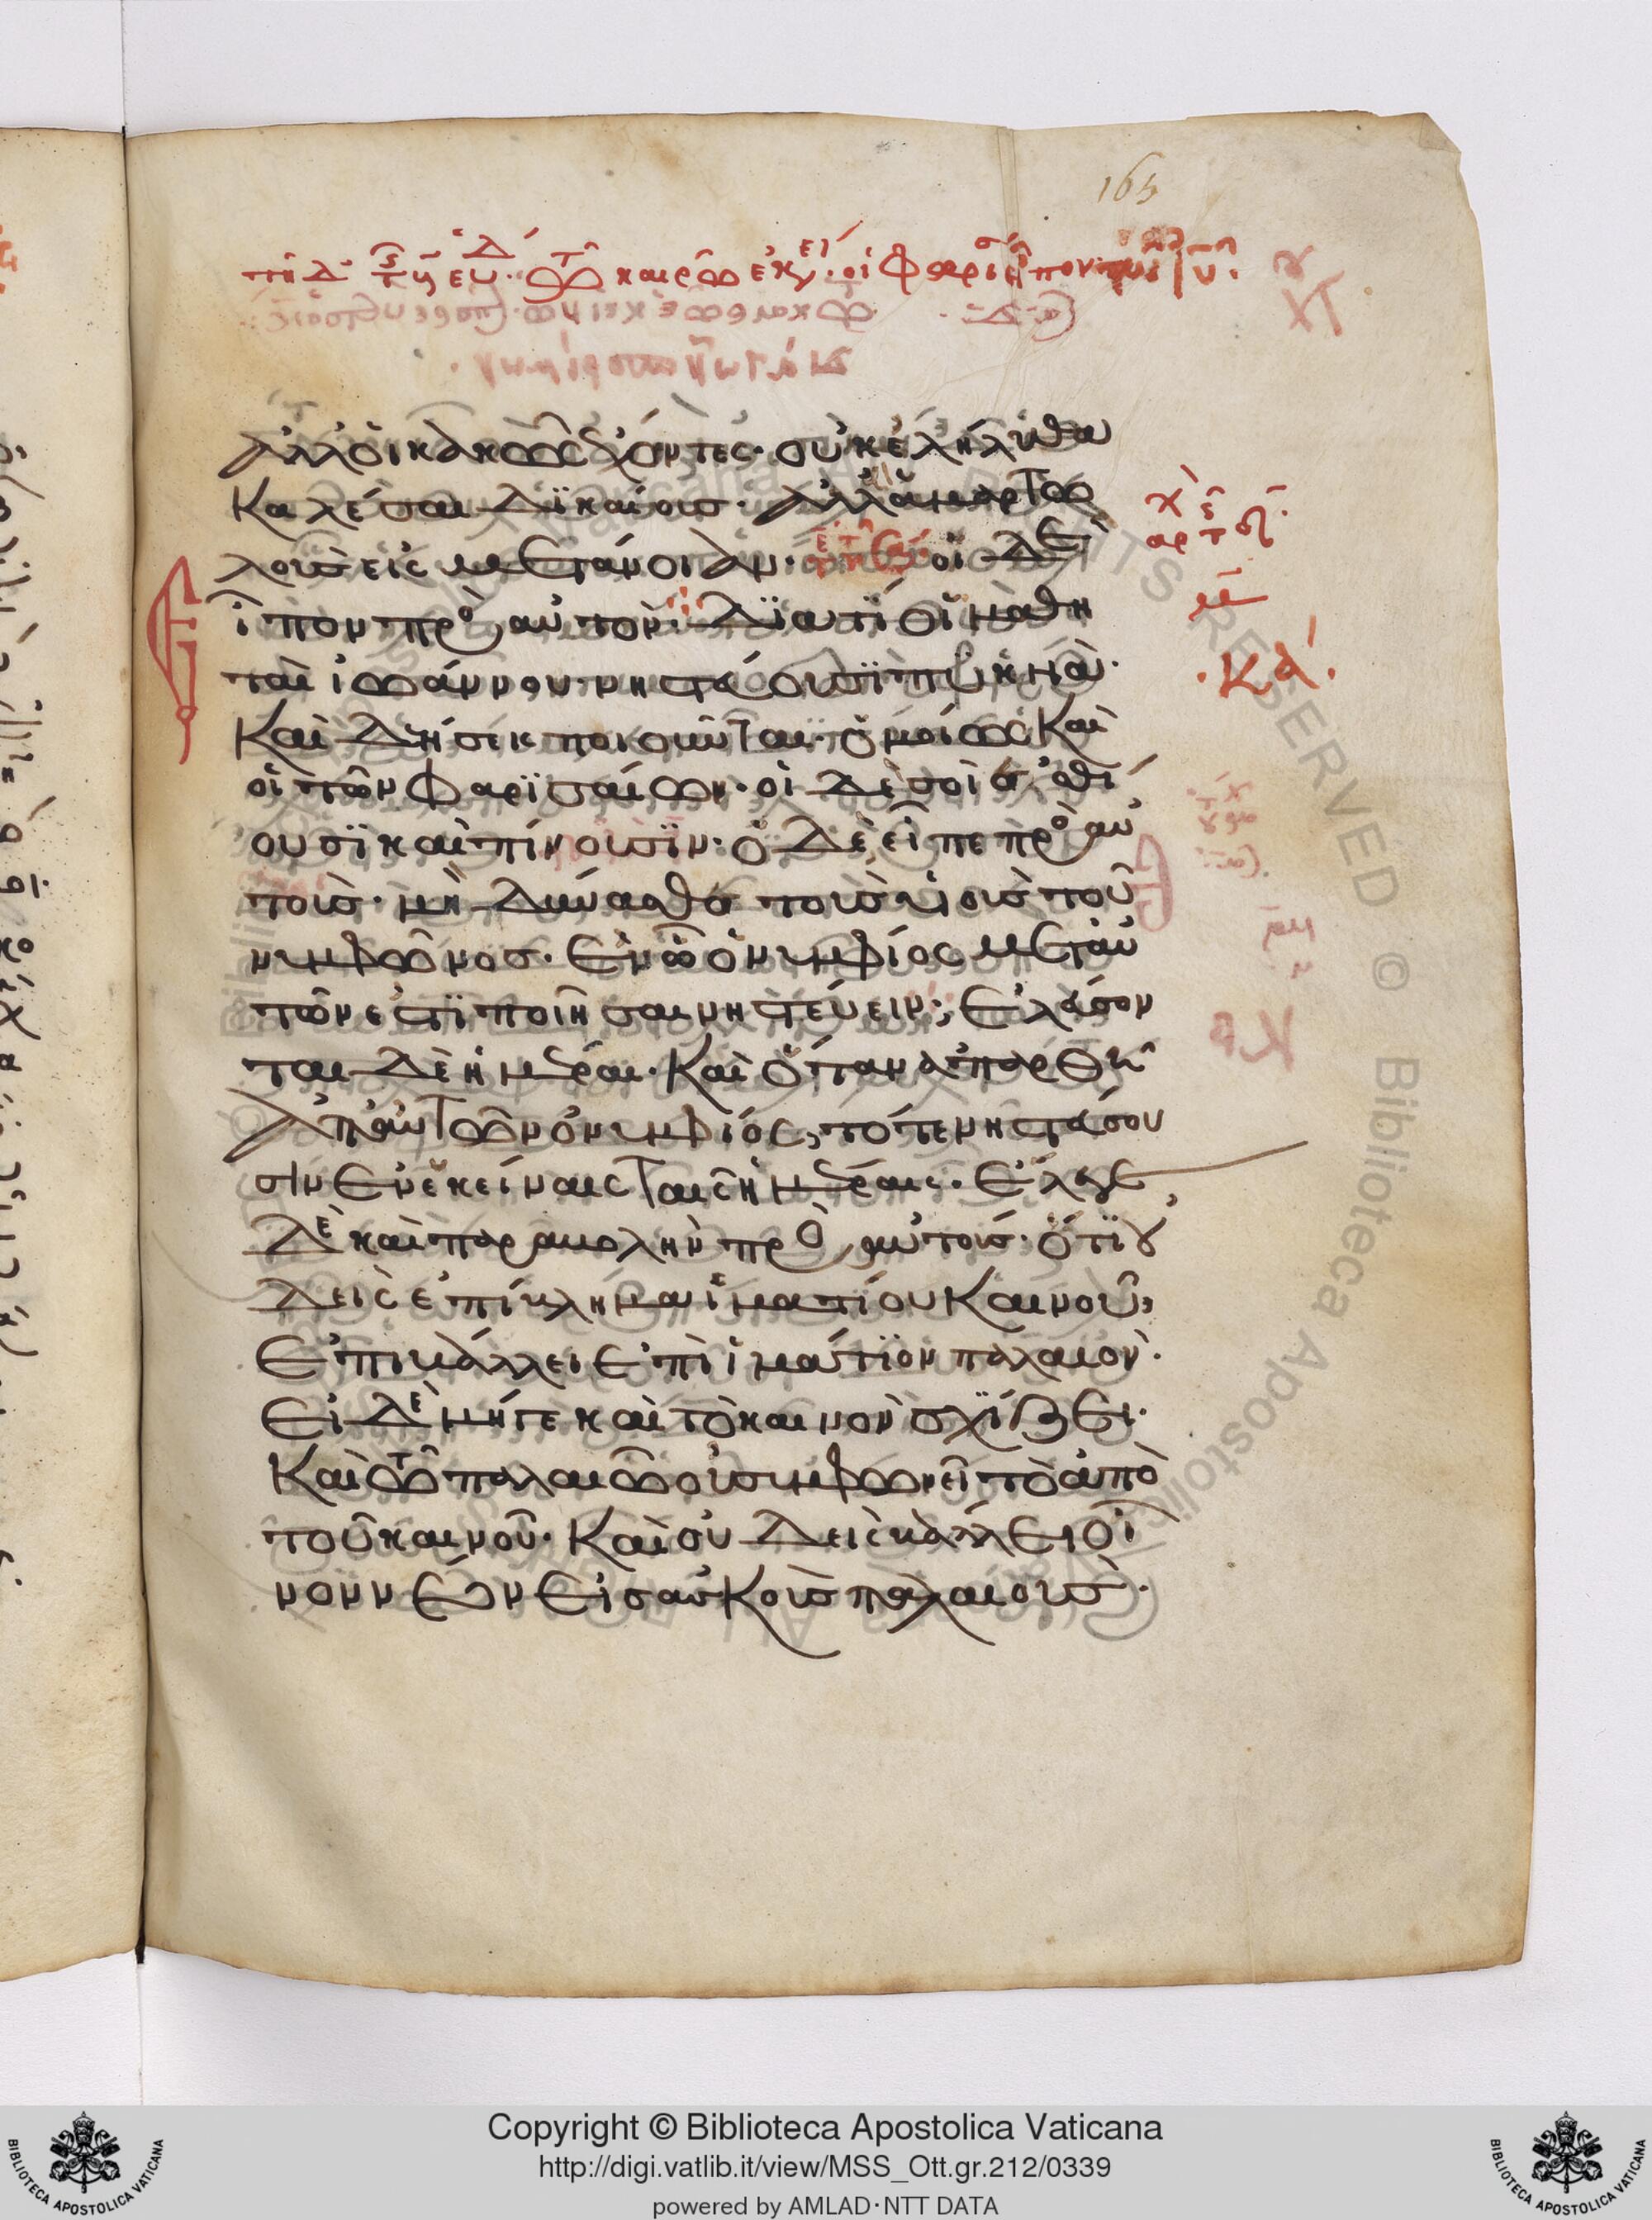 165
τῆ δ τῆς ἑβδ. τῶ καιρῶ ἐκείνω. οἱ φαρισ εἶπον πρὸς τὸν ιν.
ἀλλοἱ κακῶς ἔχοντες. οὐκ ἐλήλυθα
καλέσαι δϊκαίους. ἀλλὰ ἁμαρτω
λοὺς εἰς μετάνοιαν. οἱ δὲ ε
ἶπον πρὸς αὐτόν. δϊατί οἱ μαθη
ταὶ ἰωάννου νηστεύουσϊ πυκνὰ.
καὶ δεήσεις ποιοῦνται. ὁμοίως καὶ
οἱ τῶν φαρϊσαίων. οἱ δὲ σοὶ ἐσθί
ουσϊ καὶ πίνουσϊν. ὁ δὲ εἶπε πρὸς αὐ
τούς. μὴ δύνασθε τοὺς υἱοὺς τοῦ
νυμφῶνος. ἐν ὧ ὁ νυμφίος μετ αὐ
τῶν ἐστϊ ποιῆσαι νηστεύειν; ἐλεύσον
ται δὲ ἡμέραι. καὶ ὅταν ἀπαρθῆ
ἀπ αὐτῶν ὁ νυμφίος, τότε νηστεύσου
σιν ἐν ἐκείναις ταῖς ἡμέραις. ἔλεγε
δὲ καὶ παραβολὴν πρὸς αὐτούς. ὅτϊ οὐ
δεὶς ἐπίβλημα ἱματίου καινοῦ,
ἐπιβάλλει ἐπὶ ἱμάτϊον παλαιόν.
εἰ δὲ μήγε καὶ τὸ καινὸν σχίζει.
καὶ τῶ παλαιῶ οὐ συμφωνεῖ τὸ ἀπὸ
τοῦ καινοῦ. καὶ οὐδεὶς βάλλει οἶ
νον νέον εἰς ἀσκοὺς παλαιούς.
κα
Copyright © Biblioteca Apostolica Vaticana
http://digi.vatlib.it/view/MSS_Ott.gr.212/0339
powered by AMLAD·NTT DATA
BIBLIOTECA APOSTOLICA VATICANA
BIBLIOTECA APOSTOLICA VATICANA